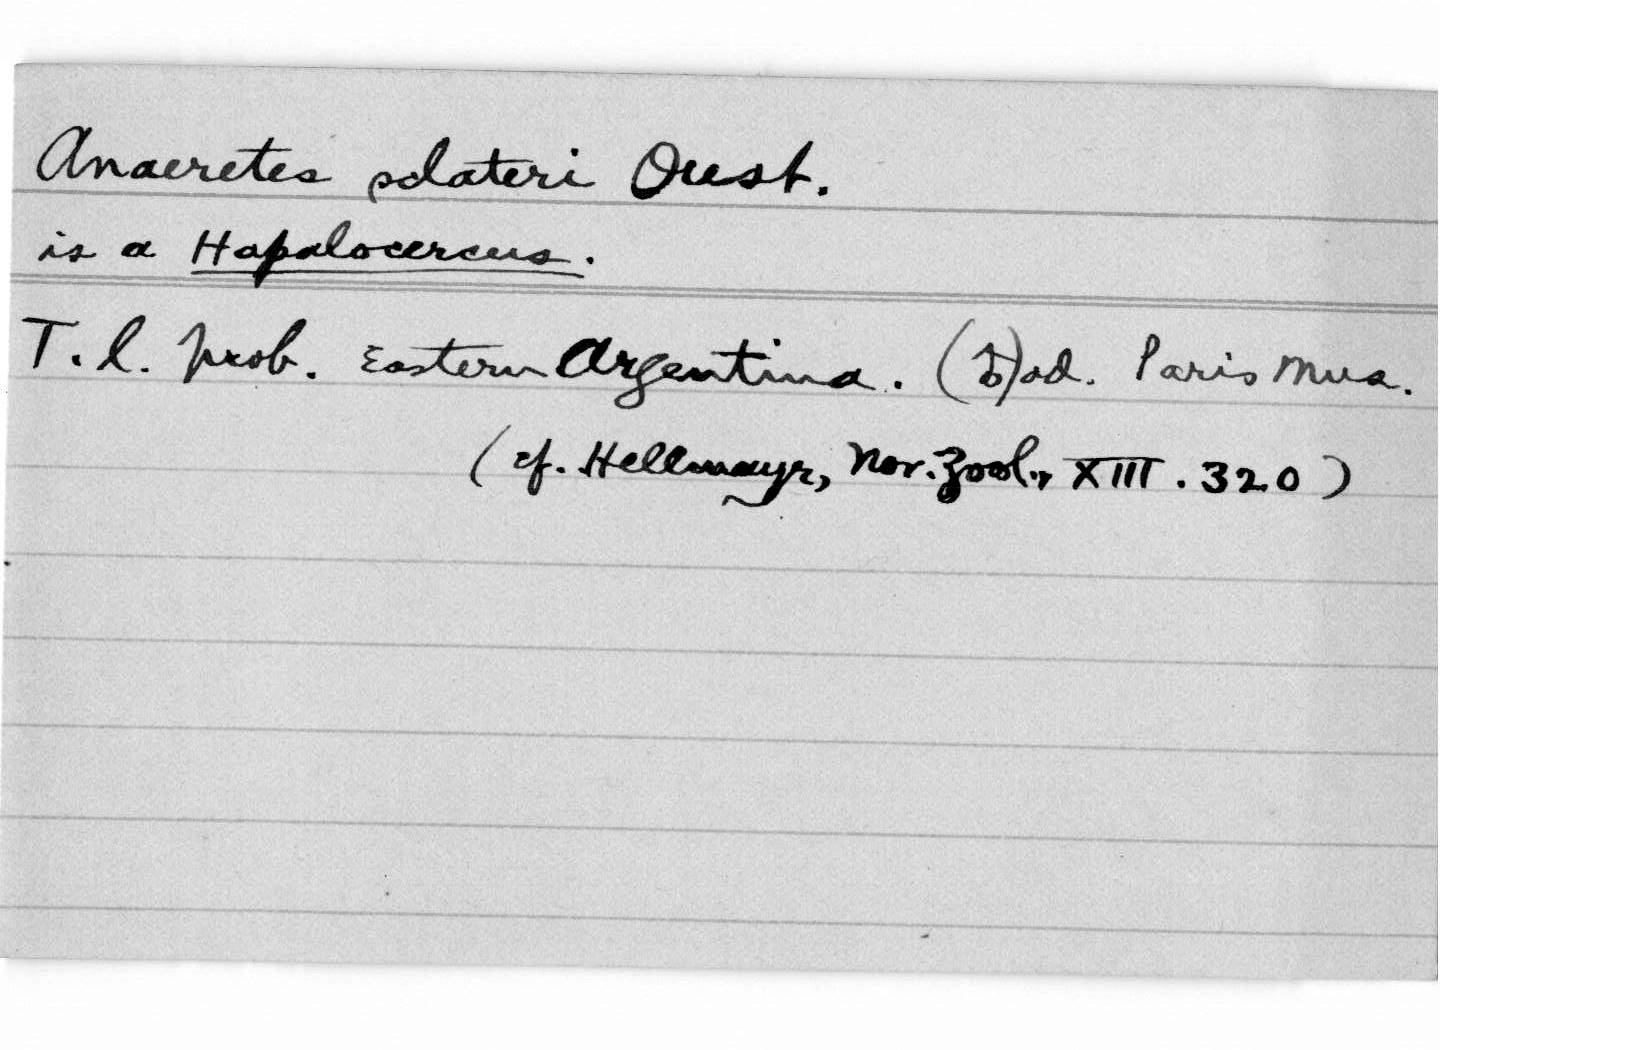 Anaeretes sclateri Oust.
is a Hapalocercus.
T.l. prob. Eastern Argentina. (♂) ad. Paris Mus.
(cf. Hellmayr, Nov. Zool., XIII. 320)